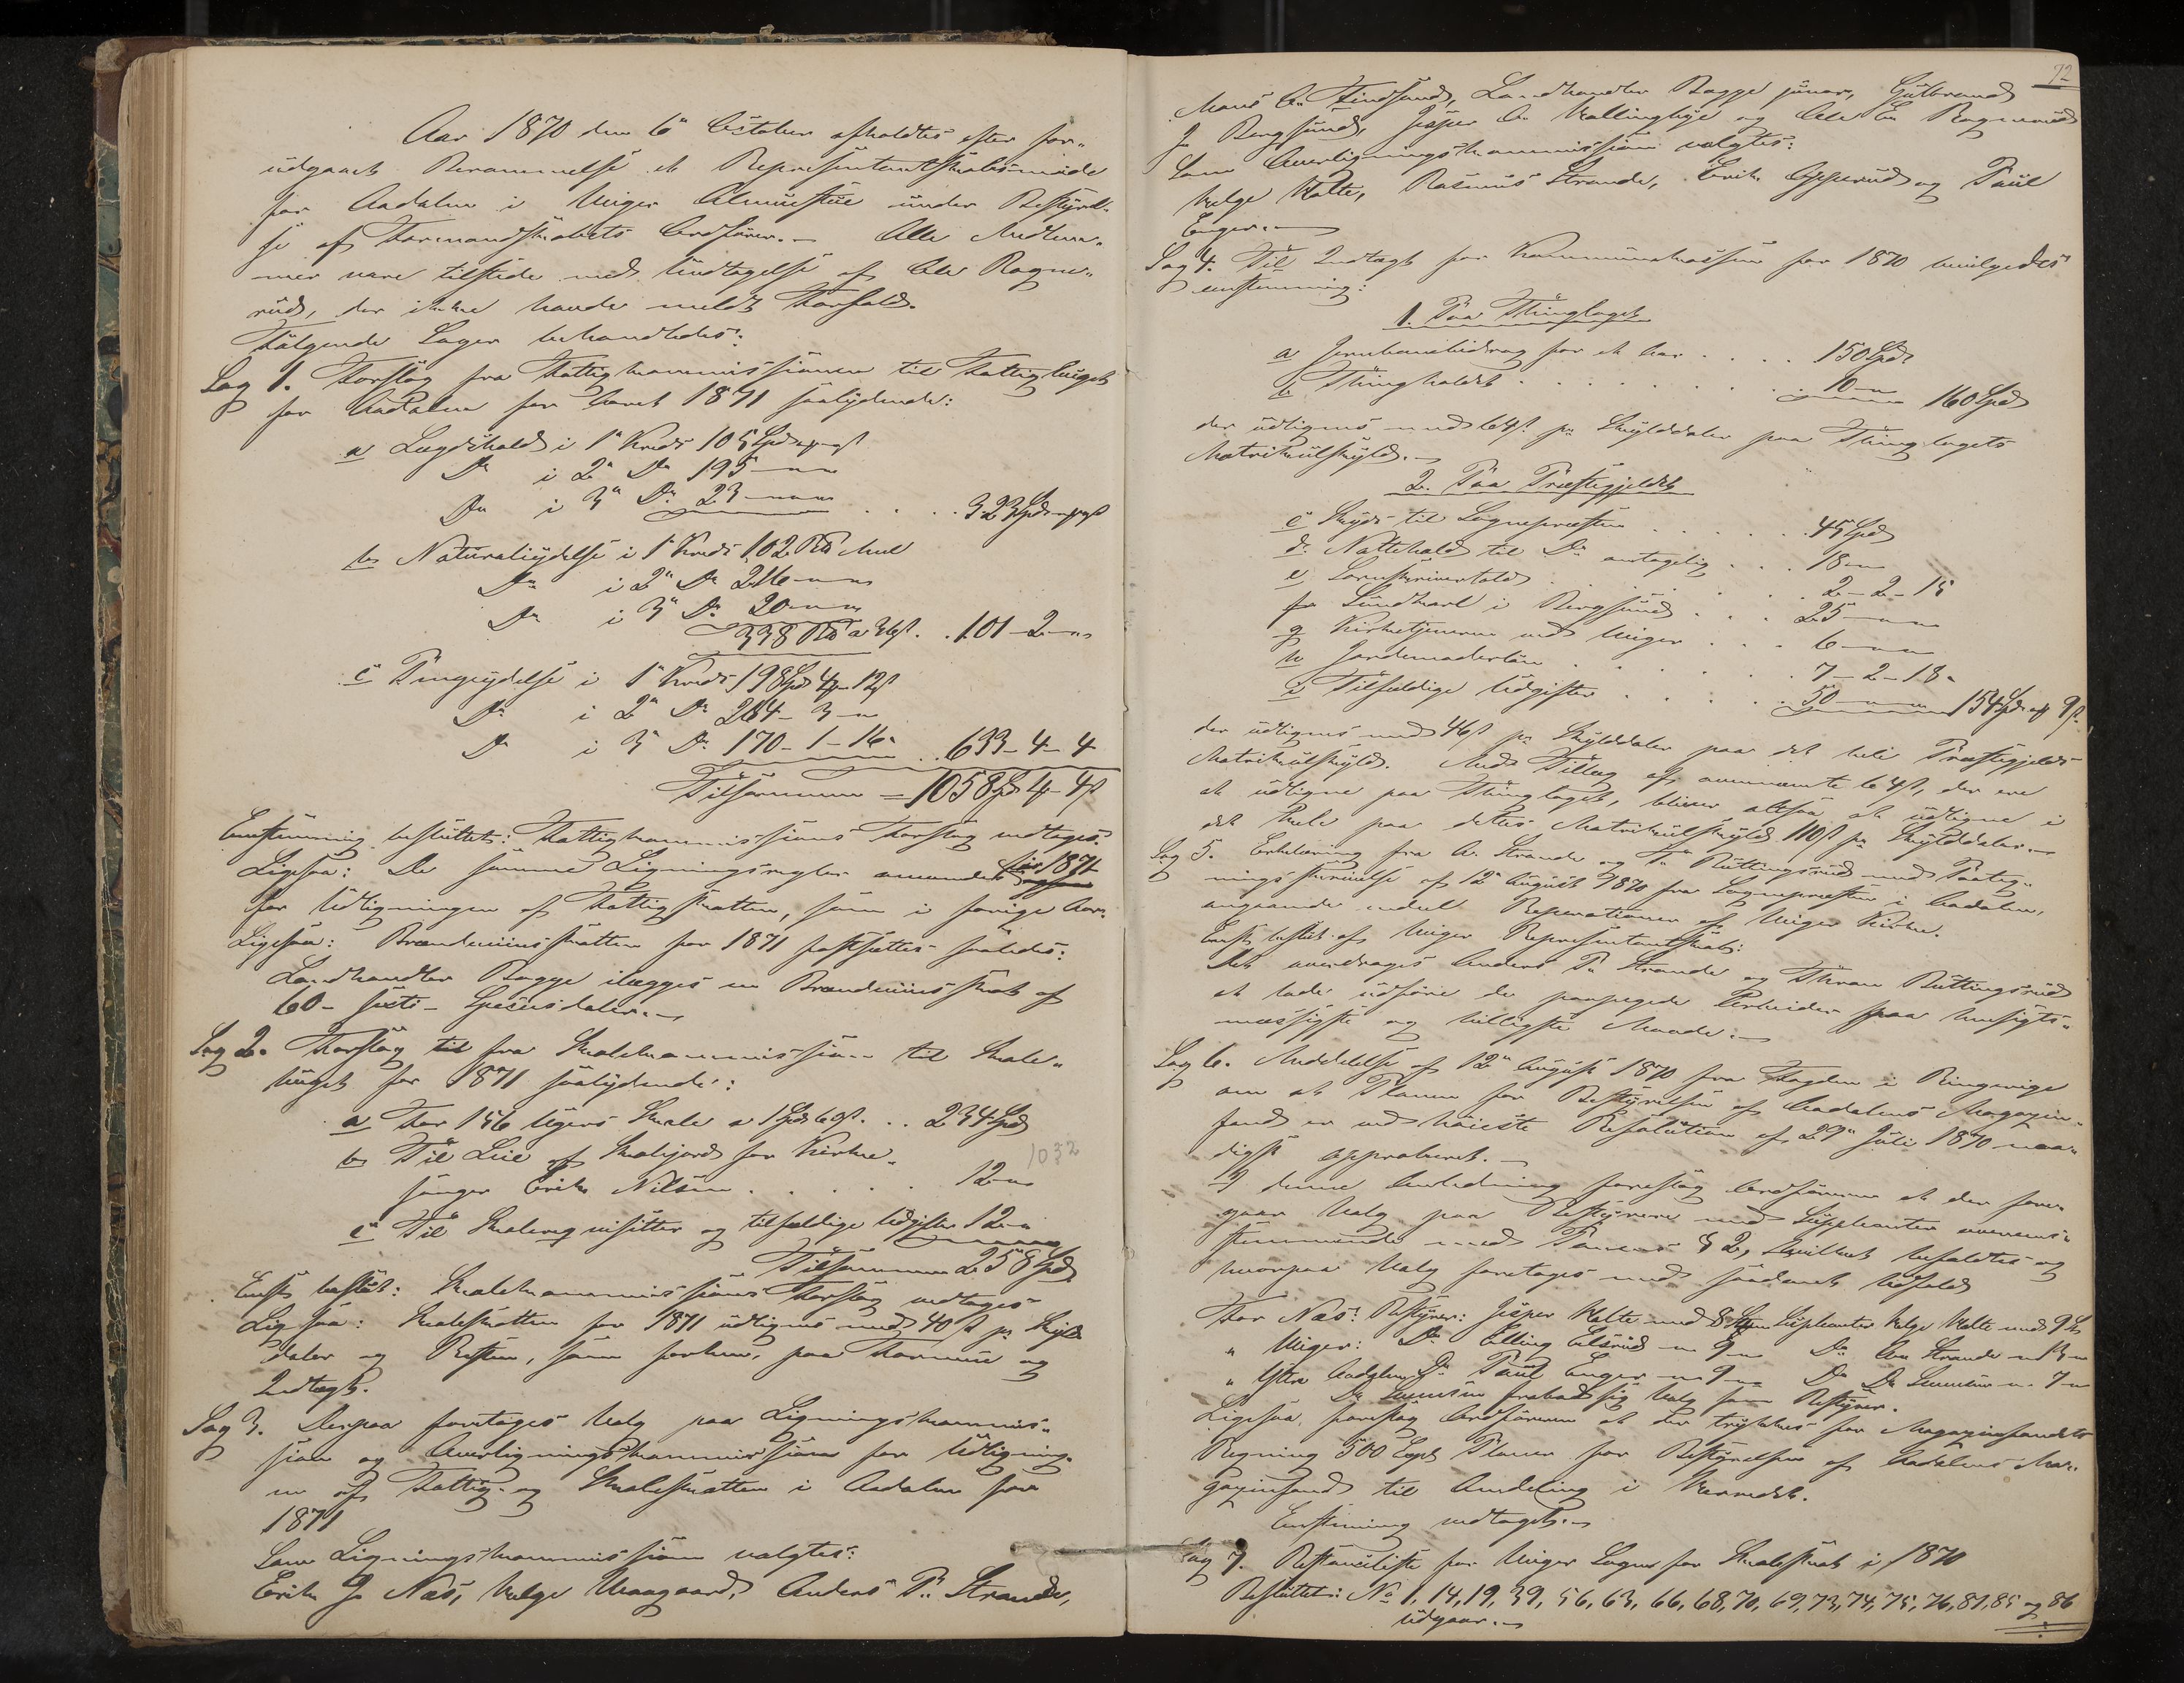 Aar 1870 den 6" October afholdtes efter for-
udgaaet Berammelse et Repræsentantskabsmøde
for Aadalen i Viger Almuestue under Bestyrel-
se af Formandskabets Ordfører. Alle Medlem-
mer vare tilstede med Undtagelse af Ole Ragn-
rud, der ikke havde meldt Forfald.
Følgende Sager behandledes:
Sag 1. Forslag fra Fattigkommissionen til Fattigbuget
for Aadalen for Aaret 1871 saalydende:
a Lægdshold i 1" Kreds 105 Spd
Do i 2" Do 195 - "
Do i 3" Do 23 - " . . 323 Spd
b Naturalydelse i 1" Kreds 102 Mel
Do i 2" Do 216 - "
Do i 3" Do 20 - "
338 a 36 s. . 101 - 2 - "
c Pengeydelse i 1" Kreds 198 Spd 4 - 12 s
Do i 2" Do 264 - 3 - "
Do i 3" Do 170 - 1 - 16 . . 633 - 4 - 4
Tilsammen = 1058 Spd 4 - 4 s
Enstemmig besluttet: Fattigkommissionens Forslag vedtages.
Ligesaa: De samme Ligningsregler anvendes for 1871
for Udligningen af Fattigskatten, som i forrige Aar.
Ligesaa: Brændeviinsskatten for 1871 fastsættes saaledes:
Landhandler Bagge ilægges en Brændeviinsskat af
60 - sexti - Speciesdaler.
Sag 2. Forslag til fra Skolekommissionen til Skole-
buget for 1871 saalydende:
a For 156 Ugers Skole a 1 Spd 60 s. . . 234 Spd
b Til Leie af Skolejord for Kirke- 1032
sanger Erik Nilsen . . . . . 12 - "
c Til Skolerequisitter og tilfældige Udgifter 12 - "
Tilsammen 258 Spd
Enst. beslut: Skolekommissionens Forslag vedtages
Ligesaa: Skoleskatten for 1871 udlignes med 40 s pr Skyld-
daler og Resten, som forhen, paa Formue og
Indtægt.
Sag 3. Derpaa foretoges Valg paa Ligningskommis-
sion og Overligningskommission for Udligning-
en af Fattig- og Skoleskatten i Aadalen for
1871
Som Ligningskommission valgtes:
Erik J. Næs, Helge Vaagaard, Anders P. Strande,
72
Mons O. Findsand, Landhandler Bagge junior, Gulbrand
J. Bergsund, Jesper O. Hallingbye og Ole E. Ragnrud
Som Overligningskommission valgtes:
Helge Valte, Rasmus Strande, Erik Opperud og Paul
Enger.
Sag 4. Til Indtægt for Kommunekassen for 1870 bevilgedes
enstemmig:
1. Paa Thinglaget
a Jernbanebidrag for et Aar . . . . 150 Spd
b Thingholdet . . . . . . . 10 - " 160 Spd
der udlignes med 64 s. pr Skylddaler paa Thinglagets
Matrikulskyld.
2. Paa Præstegjeldet
c Skyds til Sognepræsten . . . . . 45 Spd
d Nattehold til Do antagelig . . . 18 - "
e Sorenskrivertold . . . . . 2 - 2 - 15
f Sundkarl i Bergsund . . . 25 - "
g Kirketjeneren ved Viger . . . 6 - "
h Jordemoderløn . . . . . 7 - 2 - 18
i Tilfældige Udgifter . . . . 50 - " 154 Spd 9 s.
der udlignes med 46 s pr Skylddaler paa det hele Præstegjelds
Matrikulskyld. Med Tillæg af ovennævnte 64 s, der ere
at udligne paa Thinglaget, bliver altsaa at udligne i
det Hele paa dettes Matrikulskyld 110 s pr Skylddaler.
Sag 5. Erklæring fra A. Strande og T. Buttingsrud med Paateg-
ningsskrivelse af 12" August 1870 fra Sognepræsten i Aadalen,
angaaende endeel Reparationer af Viger Kirke.
Enst. beslut. af Viger Repræsentantskab:
Det overdrages Anders P. Strande og Thron Buttingsrud
at lade udføre de paapegede Arbeider paa hensigts-
mæssigste og billigste Maade.
Sag 6. Meddelelse af 12" August 1870 fra Fogden i Ringerige
om at Planen for Bestyrelsen af Aadalens Magazin-
fond er ved høieste Resolution af 29" Juli 1870 naa-
digst approberet.
I denne Anledning foreslog Ordføreren at der fore-
gaar Valg paa Bestyrere med Suppleanter overens-
stemmende med Planens § 2, hvilket befaldtes og
hvorpaa Valg foretoges med saadant Udfald
For Næs: Bestyrer: Jesper Valte med 8 Stem Suppleanter Helge Valte med 9 St
" Viger: Do Elling Elsrud " 9 " Do Strande " 13 "
" Ytre Aadalen Do Paul Enger " 9 " Do Do Svensen " 7 "
Do Svensen frabad sig Valg som Bestyrer.
Ligesaa foreslog Ordføreren at der trykkes for Magazinfondets
Regning 500 Expl Planer for Bestyrelsen af Aadalens Ma-
gazinfond til Omdeling i Herredet.
Enstemmig vedtaget.
Sag 7. Restanceliste for Viger Sogn for Skoleskat i 1870
Besluttet: No 1, 14, 19, 39, 56, 63, 66, 68, 70, 69, 73, 74, 75, 76, 81, 85 og 86
udgaar.